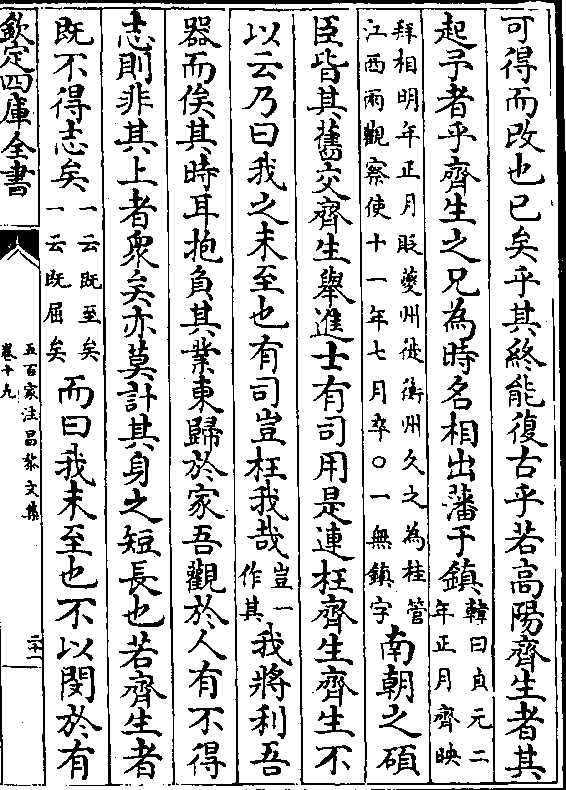 可得而改也已矣乎其終能復古乎若高陽齊生者其
起予者乎齊生之兄為時名相出藩于鎮
韓曰貞元二
年正月齊映
拜相明年正月貶夔州徙衡州久之為桂管
江西兩觀察使十一年七月卒○一無鎮字
南朝之碩
臣皆其舊交齊生舉進士有司用是連枉齊生齊生不
以云乃曰我之未至也有司豈枉我哉
豈一
作其
我將利吾
器而俟其時耳抱負其業東歸於家吾觀於人有不得
志則非其上者衆矣亦莫計其身之短長也若齊生者
既不得志矣
一云既至矣
一云既屈矣
而曰我未至也不以閔於有
欽定四庫全書
五百家注昌黎文集
卷十九
二十一